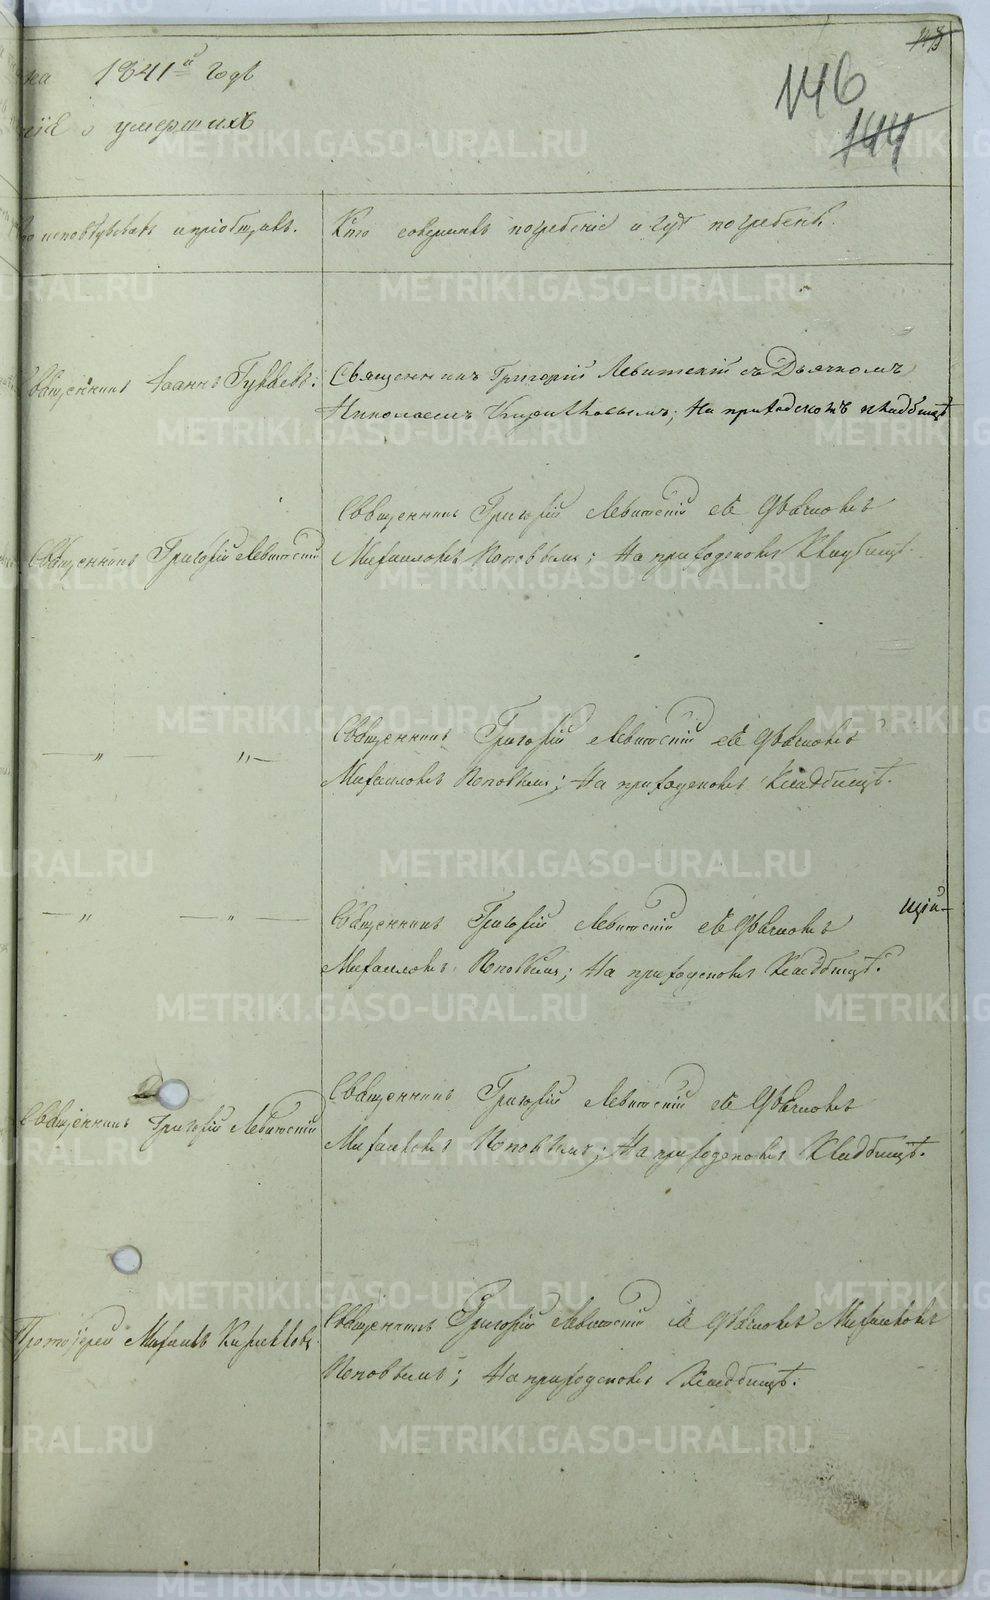 143
146
144
на 1841й годъ
о умершихъ
исповѣдывалъ и приобщалъ.
Кто совершалъ погребеніе и гдѣ погребены.
Священникъ Іоаннъ
Священникъ Григорій Левитскій съ Дьячкомъ
Николаемъ на приходскомъ кладбищѣ
Священникъ Григорій Левитскій съ Дьячкомъ
Священникъ Григорій Левитскій
Михаиломъ Поповымъ; На приходскомъ Кладбищѣ.
Священникъ Григорій Левитскій съ Дьячкомъ
— „ — „ —
Михаиломъ Поповымъ; На приходскомъ Кладбищѣ.
— „ — „ —
Священникъ Григорій Левитскій съ Дьячкомъ
Михаиломъ Поповымъ; На приходскомъ Кладбищѣ.
Священникъ Григорій Левитскій съ Дьячкомъ
Священникъ Григорій Левитскій
Михаиломъ Поповымъ; На приходскомъ Кладбищѣ.
Протоіерей Михаилъ
Священникъ Григорій Левитскій съ Дьячкомъ Михаиломъ
Поповымъ; На приходскомъ Кладбищѣ.
METRIKI.GASO-URAL.RU